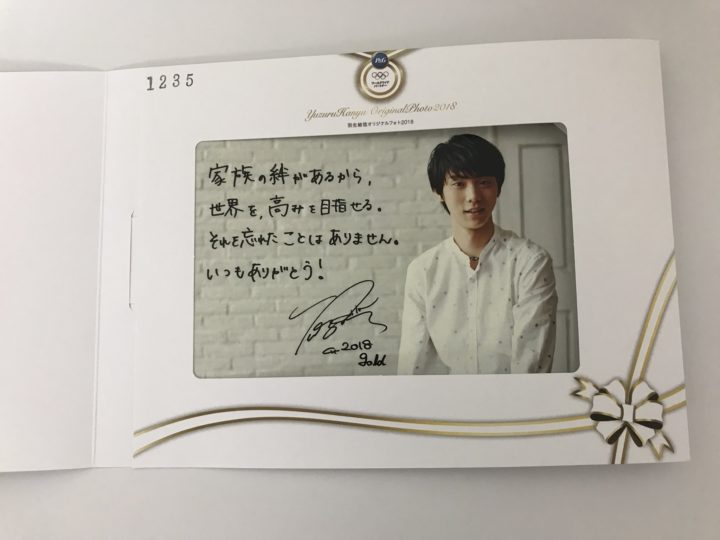 1235
P&G
ワールドワイド
パートナー
YuzuruHanyu OriginalPhoto2018
羽生結弦オリジナルフォト2018
家族の絆があるから、
世界を、高みを目指せる。
それを忘れたことはありません。
いつもありがとう!
2018
gold